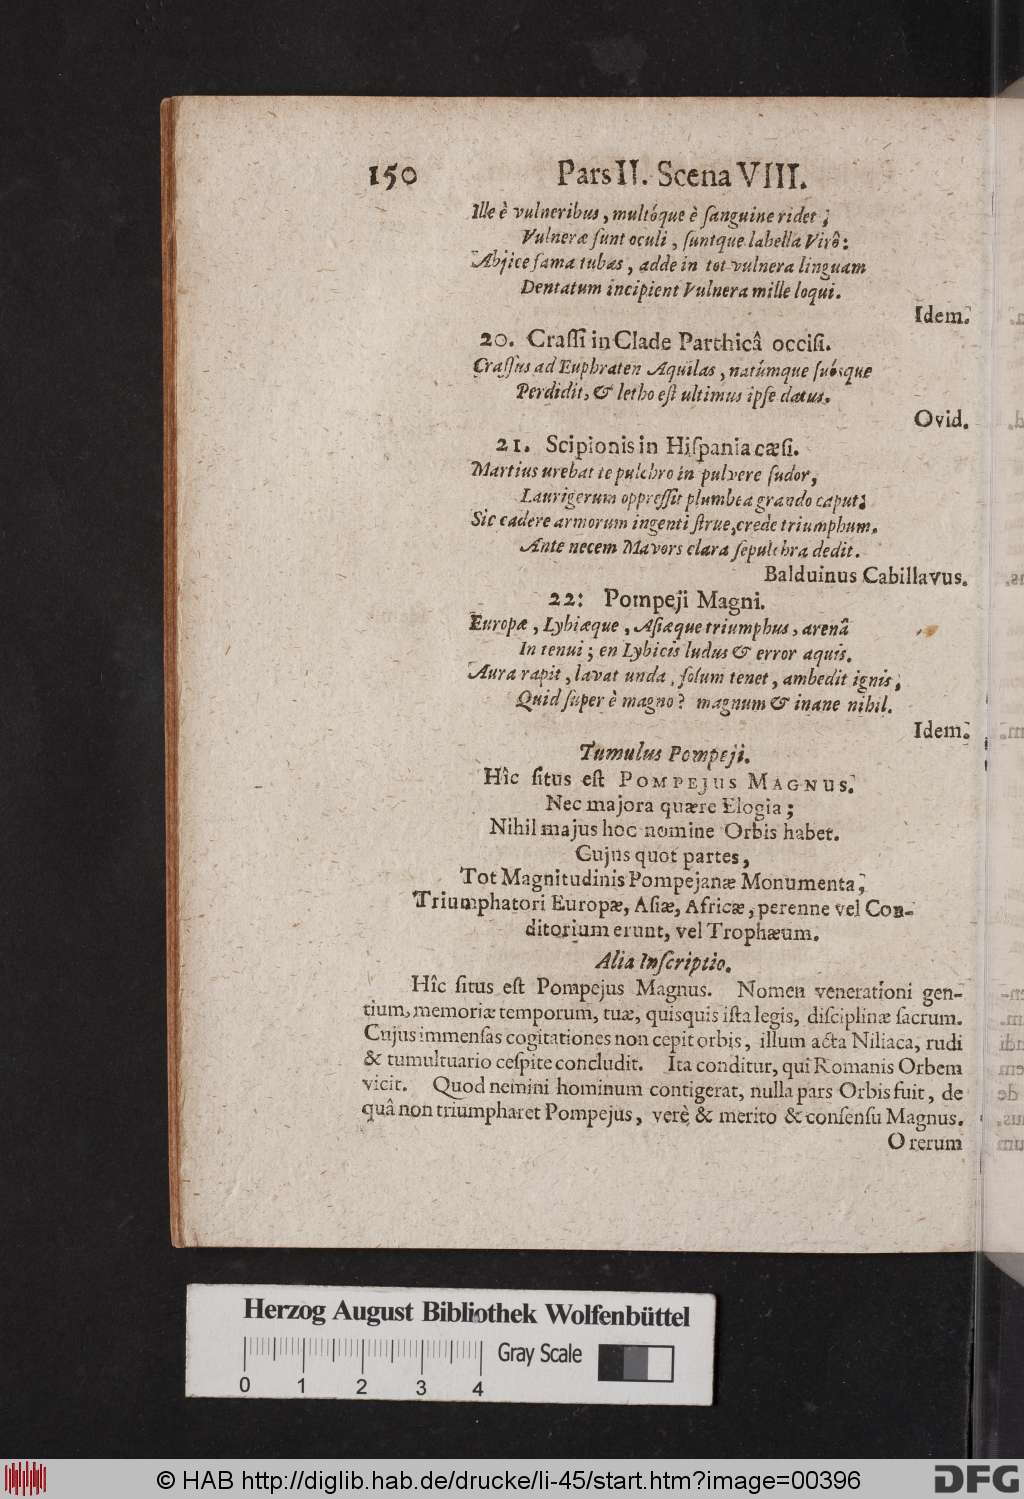 150 Pars II. Scena VIII.
Ille è vulneribus, multóque è ſanguine ridet;
Vulneræ ſunt oculi, ſuntque labella Virô:
Abjice fama tubas, adde in tot vulnera linguam
Dentatum incipient Vulnera mille loqui.
Idem.
20. Craſſi in Clade Parthicâ occiſi.
Craſſus ad Euphraten Aquilas, natúmque ſuósque
Perdidit, & letho eſt ultimus ipſe datus.
Ovid.
21. Scipionis in Hiſpania cæſi.
Martius urebat te pulchro in pulvere ſudor,
Laurigerum oppreſſit plumbea grando caput;
Sic cadere armorum ingenti ſtrue, crede triumphum.
Ante necem Mavors clara ſepulchra dedit.
Balduinus Cabillavus.
22: Pompeji Magni.
Europæ, Lybiæque, Aſiæque triumphus, arenâ
In tenui; en Lybicis ludus & error aquis.
Aura rapit, lavat unda, ſolum tenet, ambedit ignis;
Quid ſuper è magno? magnum & inane nihil.
Idem.
Tumulus Pompeji.
Hîc ſitus eſt POMPEJUS MAGNUS.
Nec majora quære Elogia;
Nihil majus hoc nomine Orbis habet.
Cujus quot partes,
Tot Magnitudinis Pompejanæ Monumenta;
Triumphatori Europæ, Aſiæ, Africæ, perenne vel Con-
ditorium erunt, vel Trophæum.
Alia Inſcriptio.
Hîc ſitus eſt Pompejus Magnus. Nomen venerationi gen-
tium, memoriæ temporum, tuæ, quisquis iſta legis, diſciplinæ ſacrum.
Cujus immenſas cogitationes non cepit orbis, illum acta Niliaca, rudi
& tumultuario ceſpite concludit. Ita conditur, qui Romanis Orbem
vicit. Quod nemini hominum contigerat, nulla pars Orbis fuit, de
quâ non triumpharet Pompejus, verè & merito & conſenſu Magnus.
O rerum
Herzog August Bibliothek Wolfenbüttel
Gray Scale
0 1 2 3 4
© HAB http://diglib.hab.de/drucke/li-45/start.htm?image=00396
DFG